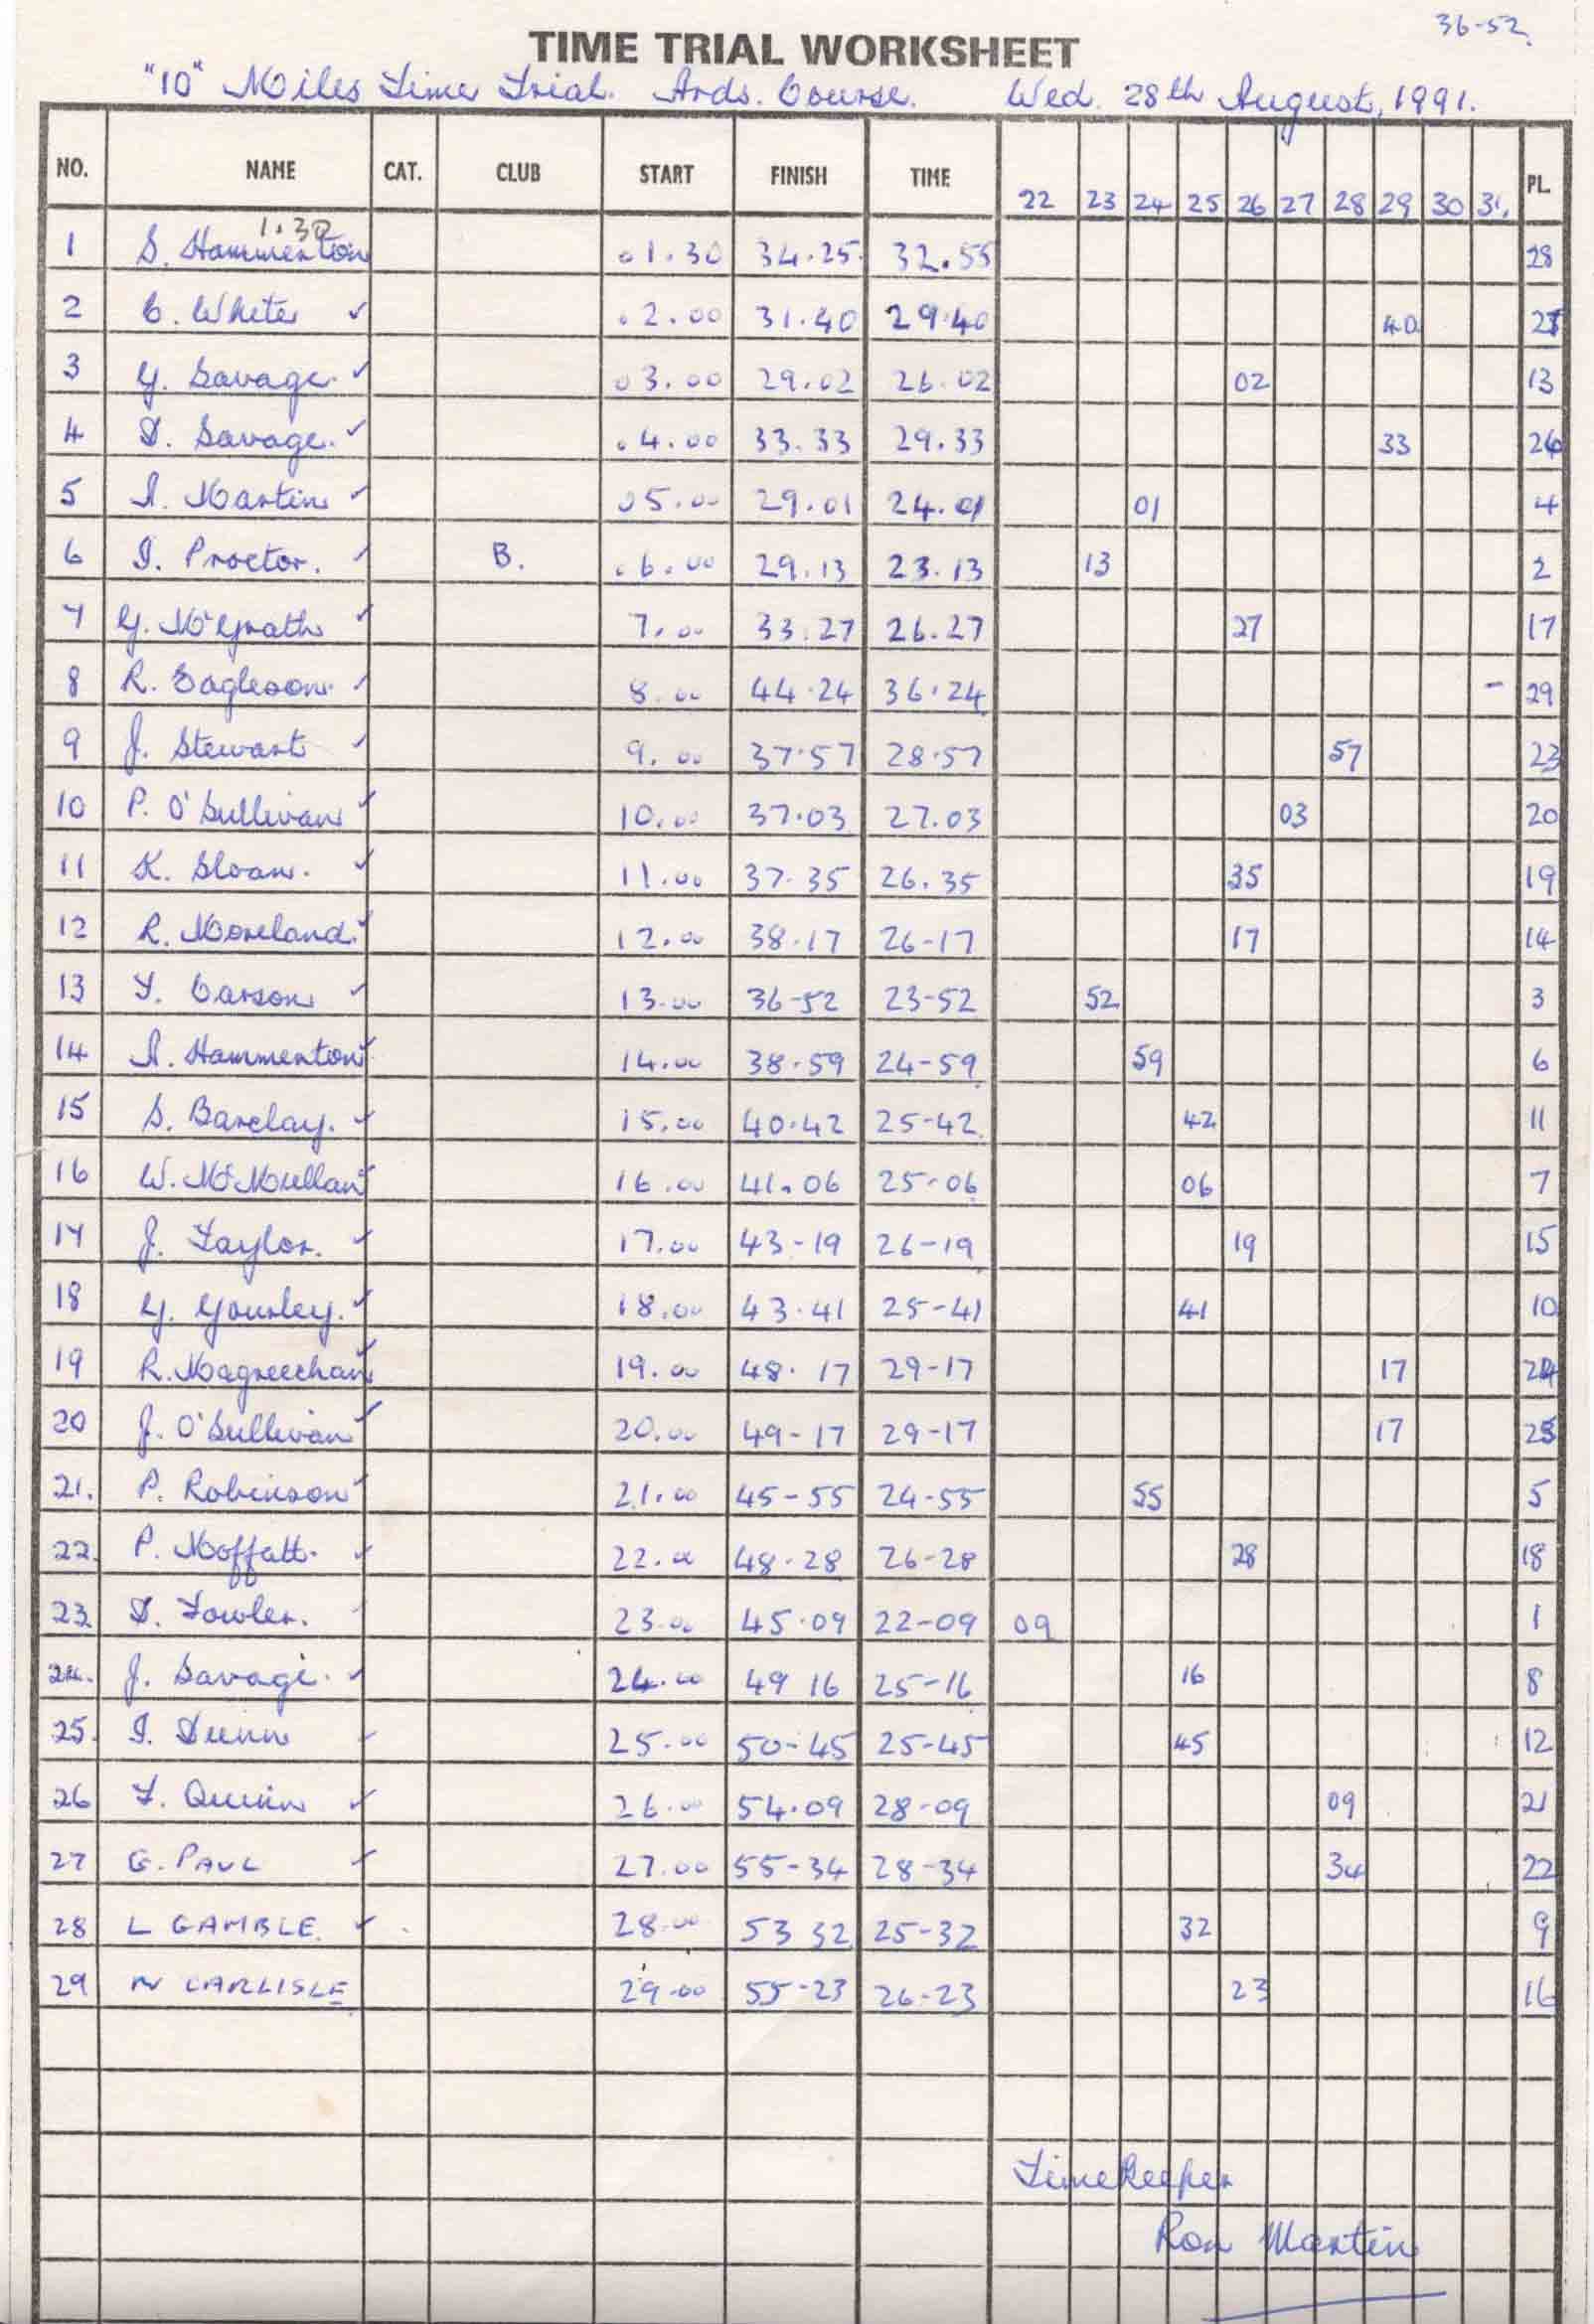 36-52.
TIME TRIAL WORKSHEET
"10" Miles Time Trial. Ards. Course. Wed. 28th August, 1991.
NO. NAME CAT. CLUB START FINISH TIME 22 23 24 25 26 27 28 29 30 31. PL.
1.30
1 S. Hammerton 01.30 34.25 32.55 28
2 C. White ✓ .2.00 31.40 29.40 40 27
3 G. Savage. ✓ 03.00 29.02 26.02 02 13
4 D. Savage. ✓ .4.00 33.33 29.33 33 26
5 A. Martin ✓ 05.00 29.01 24.01 01 4
6 I. Proctor. ✓ B. .6.00 29.13 23.13 13 2
7 G. McGrath ✓ 7.00 33.27 26.27 27 17
8 R. Eagleson. ✓ 8.00 44.24 36.24 - 29
9 J. Stewart ✓ 9.00 37.57 28.57 57 23
10 P. O'Sullivan ✓ 10.00 37.03 27.03 03 20
11 K. Sloan. ✓ 11.00 37.35 26.35 35 19
12 R. Moreland. ✓ 12.00 38.17 26-17 17 14
13 T. Carson ✓ 13.00 36-52 23-52 52 3
14 A. Hammerton ✓ 14.00 38.59 24-59 59 6
15 S. Barclay. ✓ 15.00 40.42 25-42 42 11
16 W. McMullan ✓ 16.00 41.06 25-06 06 7
17 J. Taylor. ✓ 17.00 43-19 26-19 19 15
18 G. Gourley. ✓ 18.00 43.41 25-41 41 10
19 R. Magreechan ✓ 19.00 48.17 29-17 17 24
20 J. O'Sullivan ✓ 20.00 49-17 29-17 17 25
21. P. Robinson ✓ 21.00 45-55 24-55 55 5
22. P. Moffatt. ✓ 22.00 48.28 26-28 28 18
23. D. Fowler. ✓ 23.00 45.09 22-09 09 1
24. J. Savage. ✓ 24.00 49 16 25-16 16 8
25. I. Dunn ✓ 25.00 50-45 25-45 45 12
26 F. Quinn ✓ 26.00 54.09 28-09 09 21
27 G. PAUL ✓ 27.00 55-34 28-34 34 22
28 L GAMBLE. ✓ 28.00 53 32 25-32 32 9
29 N CARLISLE 29.00 55-23 26-23 23 16
Timekeeper
Ron Martin